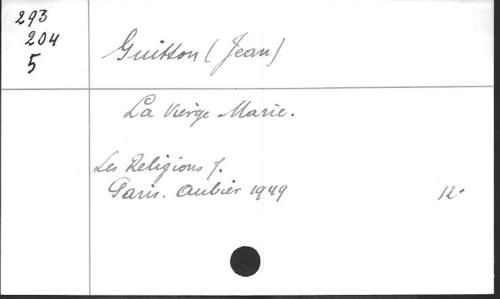 293
204
5
Guitton (Jean)
La Vierge Marie.
Les Religions 7.
Paris. Aubier 1949 12°